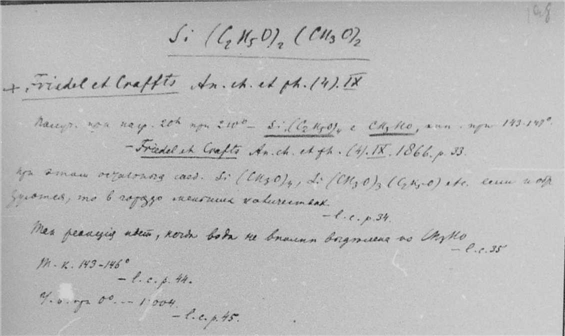 Si (C2H5O)2 (CH3O)2
+ Friedel et Craffts An. ch. et ph. (4). IX
Получ. при нагр. 20h при 210° – Si(C2H5O)4 с CH3HO, кип. при 143-147°.
– Friedel et Crafts An. ch. et ph. (4). IX. 1866. p. 33.
при этом остальныя соед. Si(CH3O)4, Si(CH3O)3(C2H5O) etc. если и обр
зуются, то в гораздо меньших количествах
– l. c. p. 34.
Так реакція идет, когда вода не вполне выделена из CH3HO
– l. c. 35
Т. к. 143-146°
– l. c. p. 44.
У. в. при 0° – 1.004.
– l. c. p. 45.